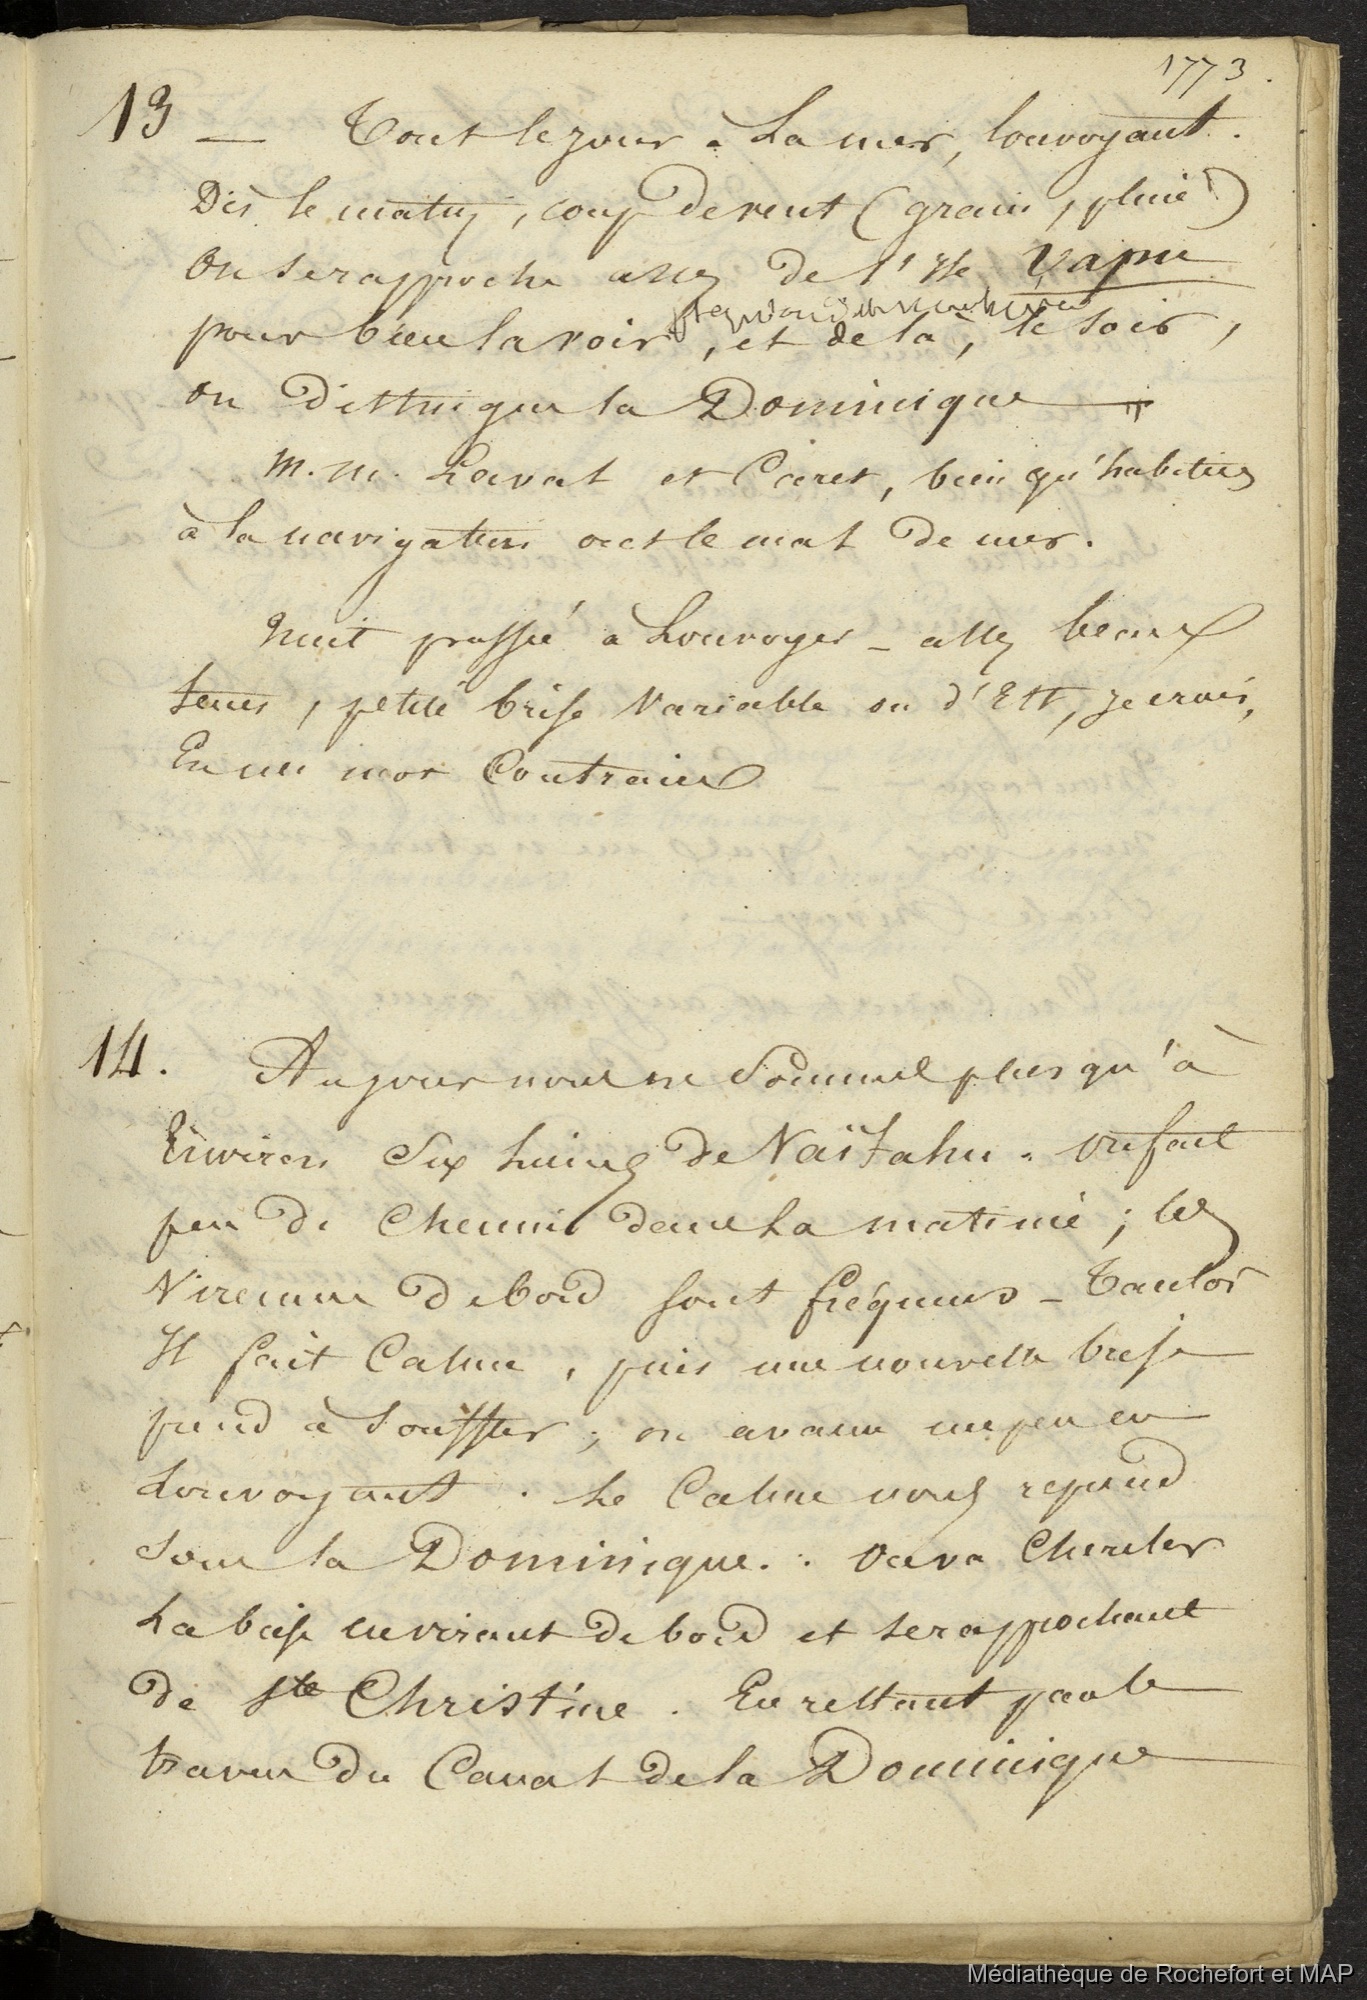 1773.
13 — Tout le jour à la mer, louvoyant.
Dès le matin, coup de vent (grain, pluie)
On se rapproche assez de l'Isle Vapu
pour bien la voir, et de là, le soir,
on distingue la Dominique —
M. M. Lavat et Caret, bien qu'habitués
à la navigation ont le mal de mer.
Nuit passée à Louvoyer – assez beau
tems, petite brise Variable ou d'Est, je crois,
En un mot Contraire
14. Au jour nous ne Sommes plus qu'à
Environ Six lieues de Naïtahu. on fait
peu de Chemin dans la matinée ; les
Viremens de bord sont fréquens – Tantôt
Il fait Calme, puis une nouvelle brise
prend à Souffler ; on avance un peu en
Louvoyant. Le Calme nous reprend
Sous la Dominique. . on va Chercher
La brise en virant de bord et se rapprochant
de Ste Christine. En restant par le
travers du Canal de la Dominique
Médiathèque de Rochefort et MAP